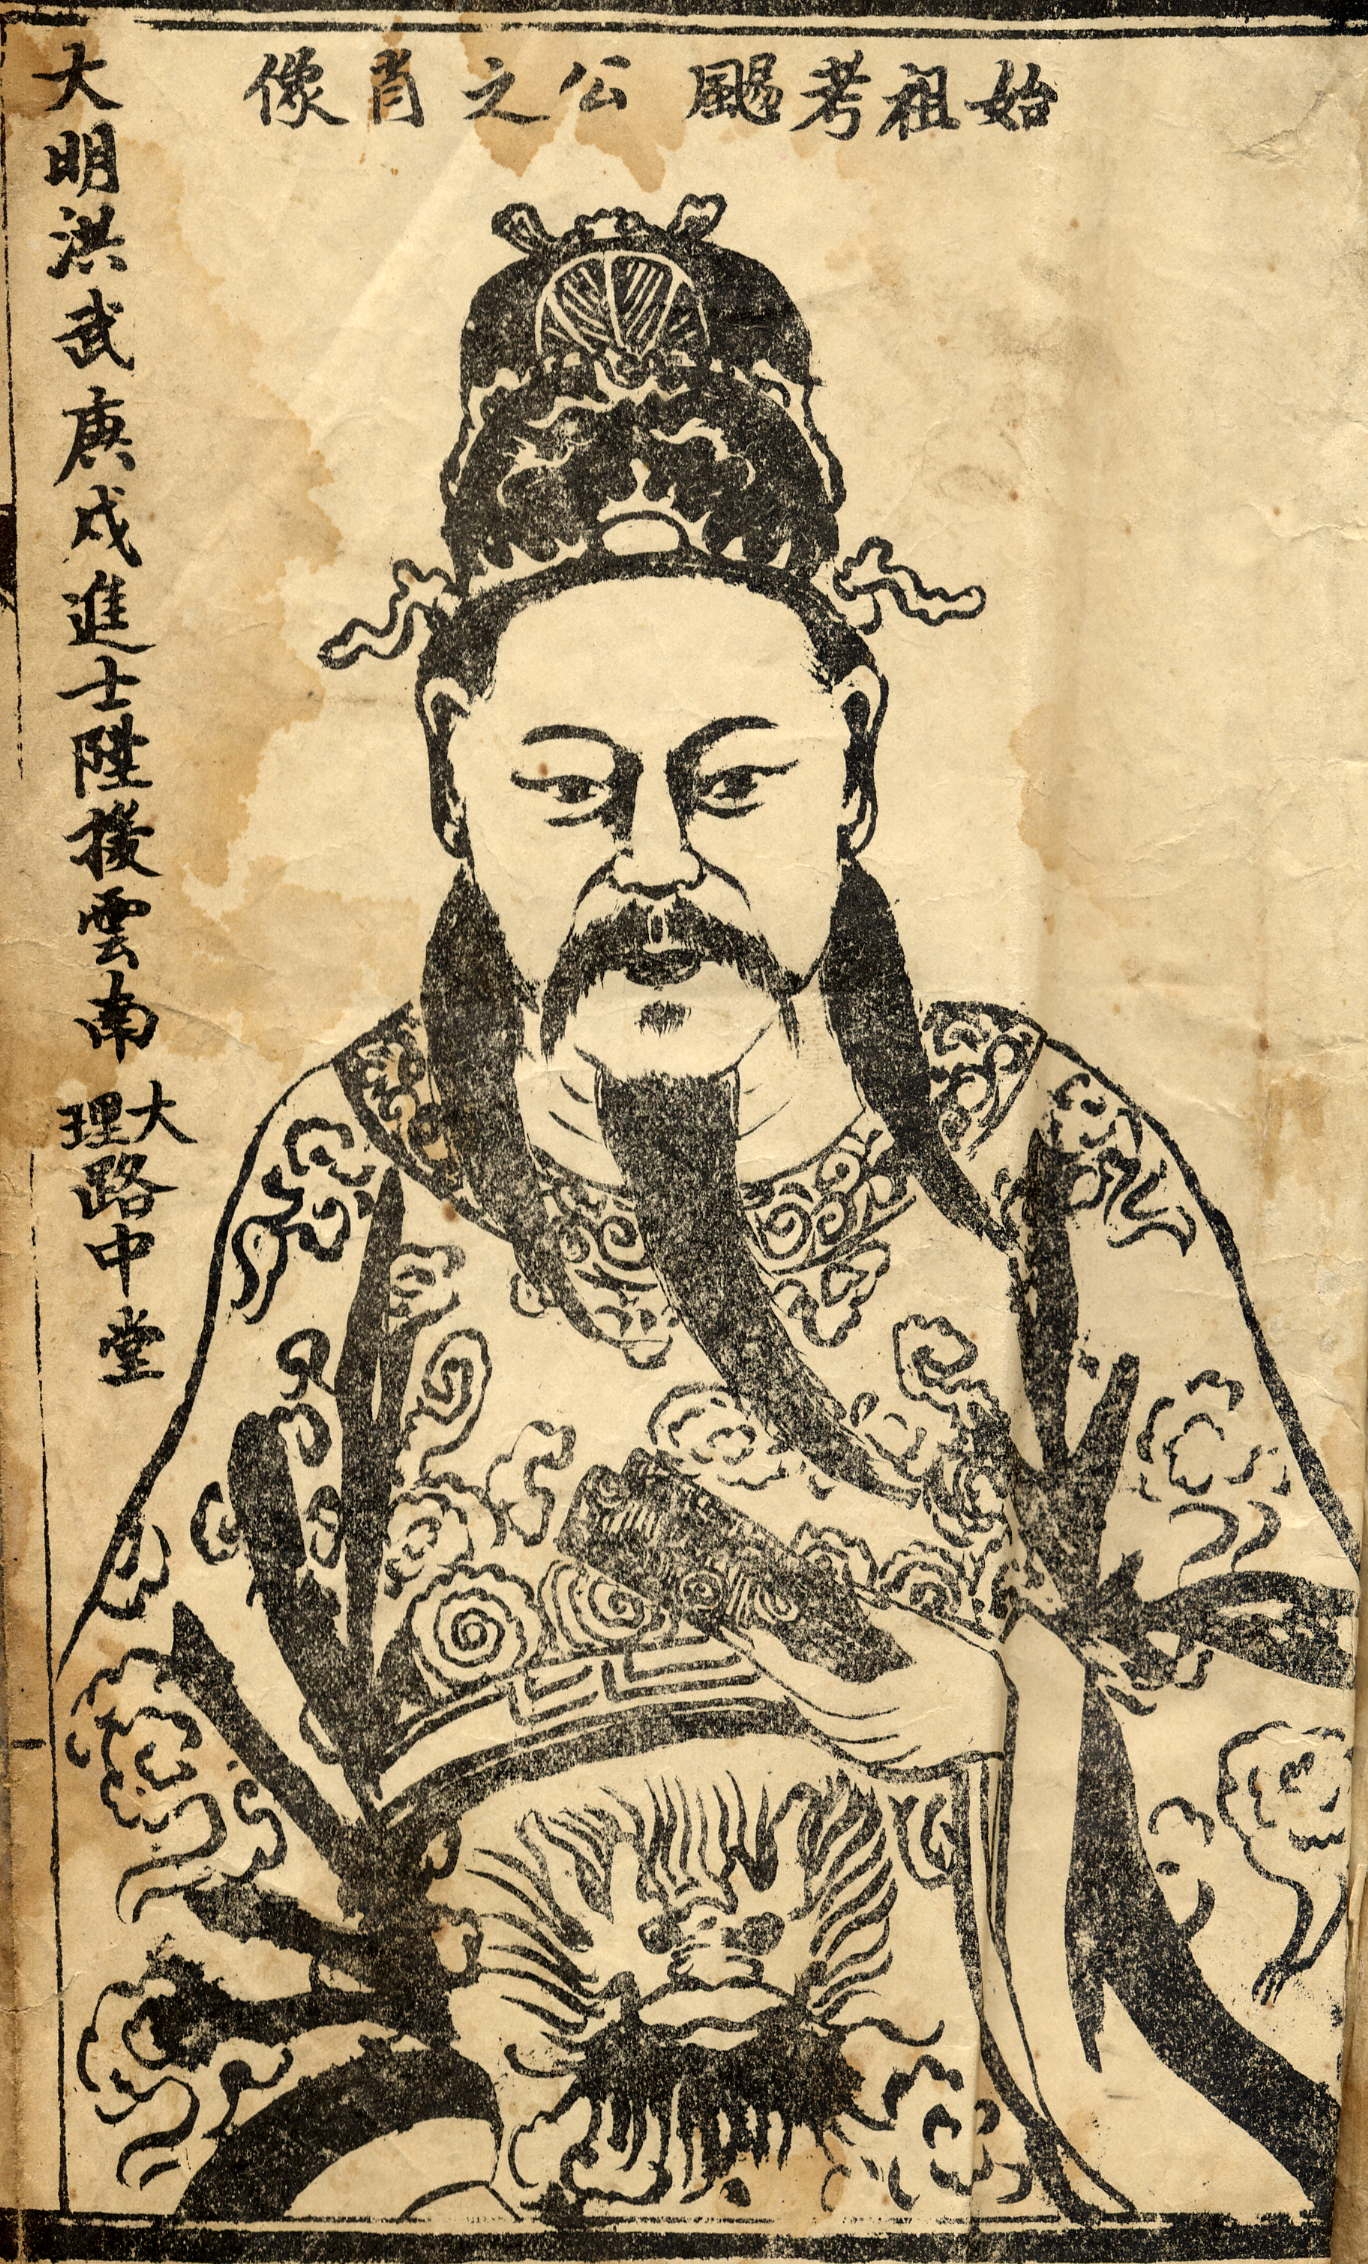 始祖考颺公之肖像
大明洪武庚戍進士陞授雲南大理路中堂